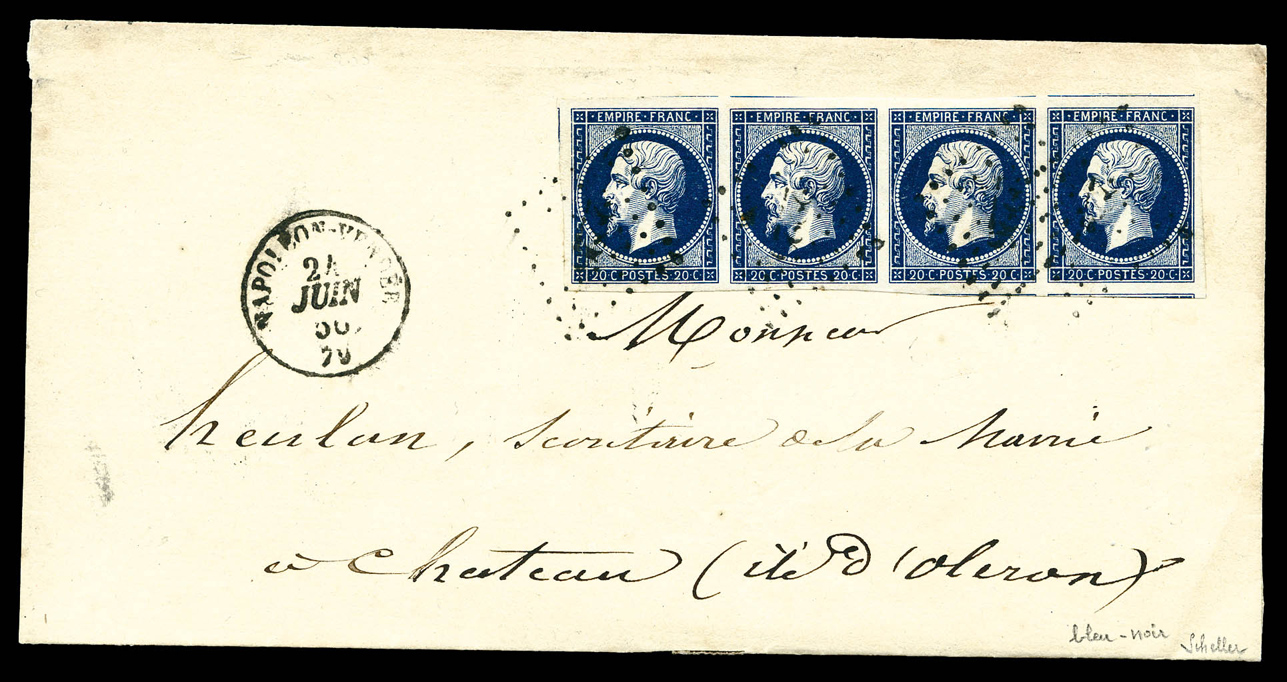 EMPIRE·FRANC· EMPIRE·FRANC· EMPIRE·FRANC· EMPIRE·FRANC·
20·C·POSTES·20·C· 20·C·POSTES·20·C· 20·C·POSTES·20·C· 20·C·POSTES·20·C·
NAPOLEON-VENDÉE
24
JUIN
79
Monsieur
heulan, secrétaire de la Mairie
à Chateau (ile d'Oleron)
bleu-noir
Scheller